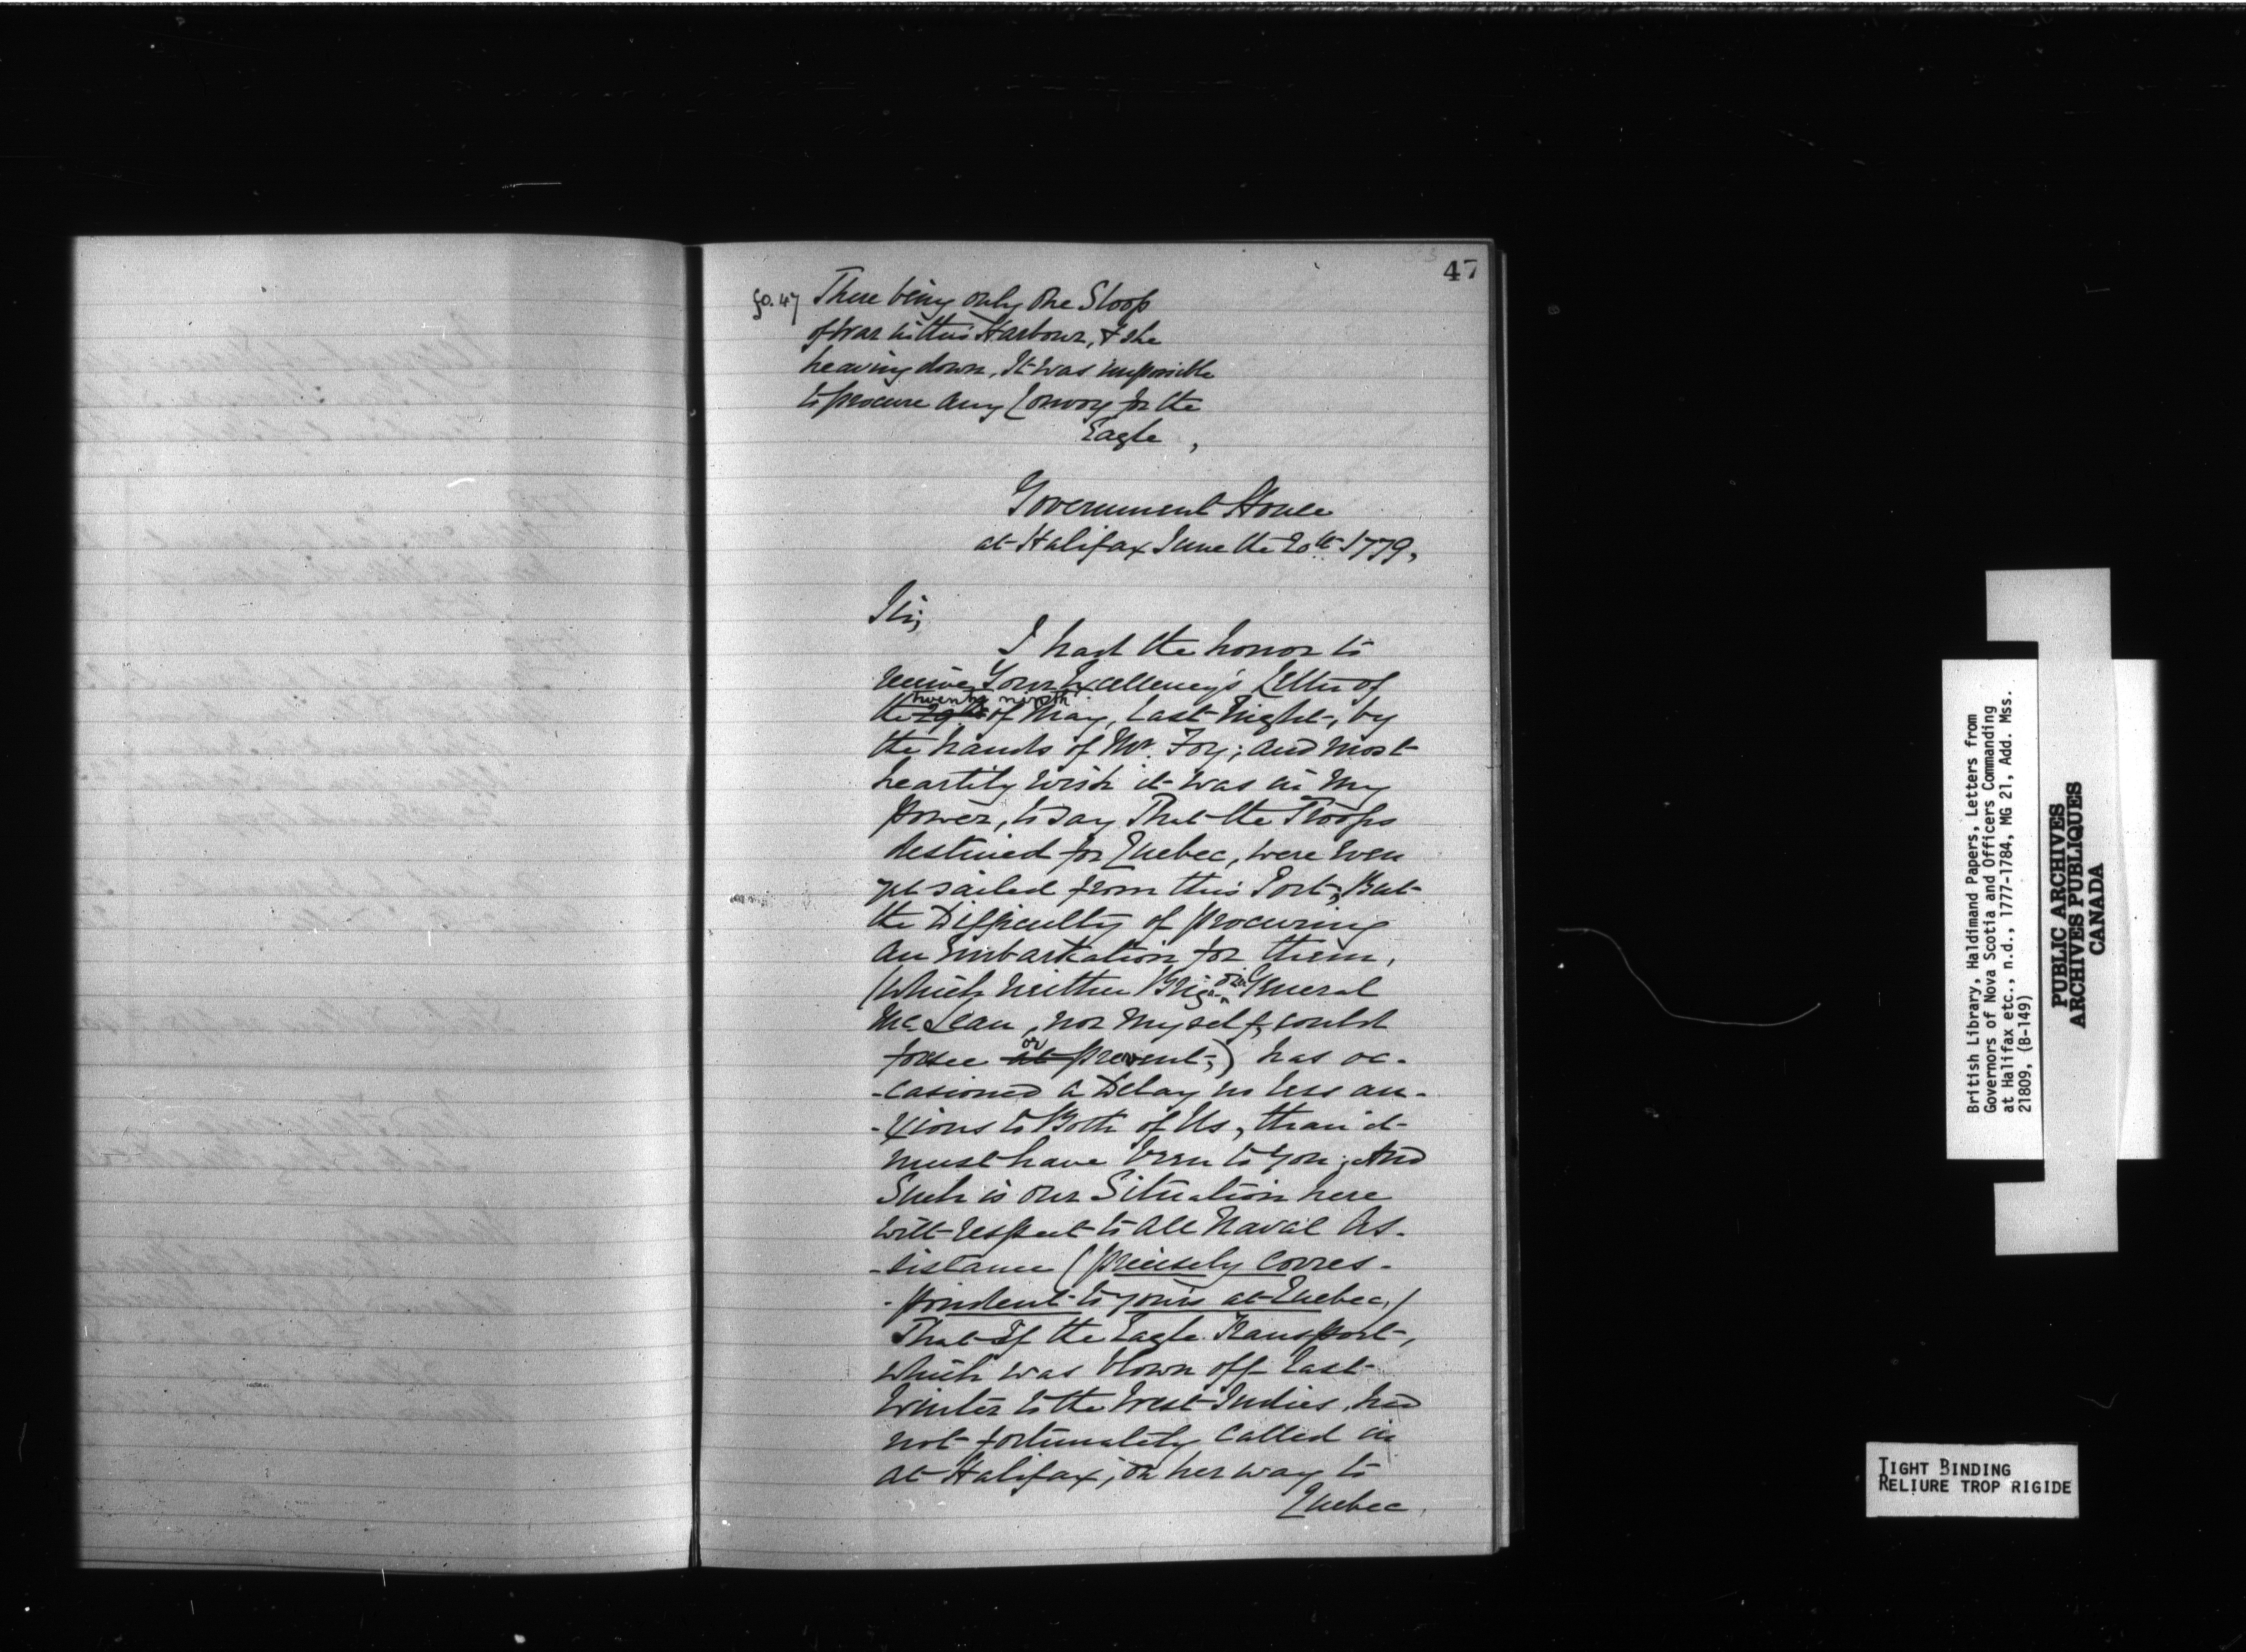 47
fo. 47 There being only One Sloop
of War in this Harbour, & she
heaving down, It was impossible
to procure any Convoy for the
Eagle,
Government House
at Halifax June the 20th 1779,
Sir,
I had the honor to
receive Your Excellency's Letter of
twenty ninth
the 29th of May, last Night, by
the hands of Mr. Foy; and most
heartily wish it was in My
Power, to say That the Troops
destined for Quebec, were even
yet sailed from this Port, But
the Difficulty of procuring
an Embarkation for them,
(which neither Brigr. General
McLean, nor Myself, could
or
forsee at prevent,) has oc-
-casioned a Delay no less an-
-xious to Both of Us, than it
must have been to You; And
Such is our Situation here
with respect to all Naval As-
-sistance (precisely corres-
-pondent to yours at Quebec,)
That If the Eagle Transport,
which was blown off last
Winter to the West Indies, had
not fortunately called in
at Halifax, on her way to
Quebec,
British Library, Haldimand Papers, Letters from
Governors of Nova Scotia and Officers Commanding
at Halifax etc., n.d., 1777-1784, MG 21, Add. Mss.
21809, (B-149)
PUBLIC ARCHIVES
ARCHIVES PUBLIQUES
CANADA
TIGHT BINDING
RELIURE TROP RIGIDE